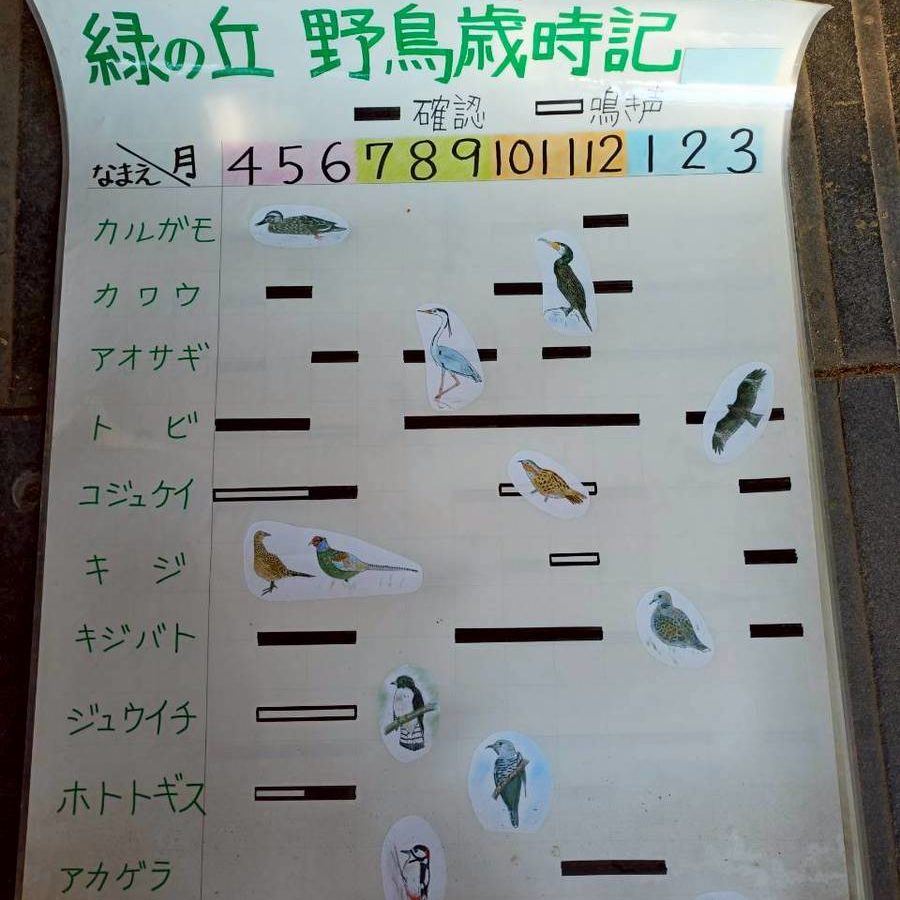 緑の丘 野鳥歳時記
確認 鳴き声
なまえ 月 4 5 6 7 8 9 10 11 12 1 2 3
カルガモ
カワウ
アオサギ
トビ
コジュケイ
キジ
キジバト
ジュウイチ
ホトトギス
アカゲラ